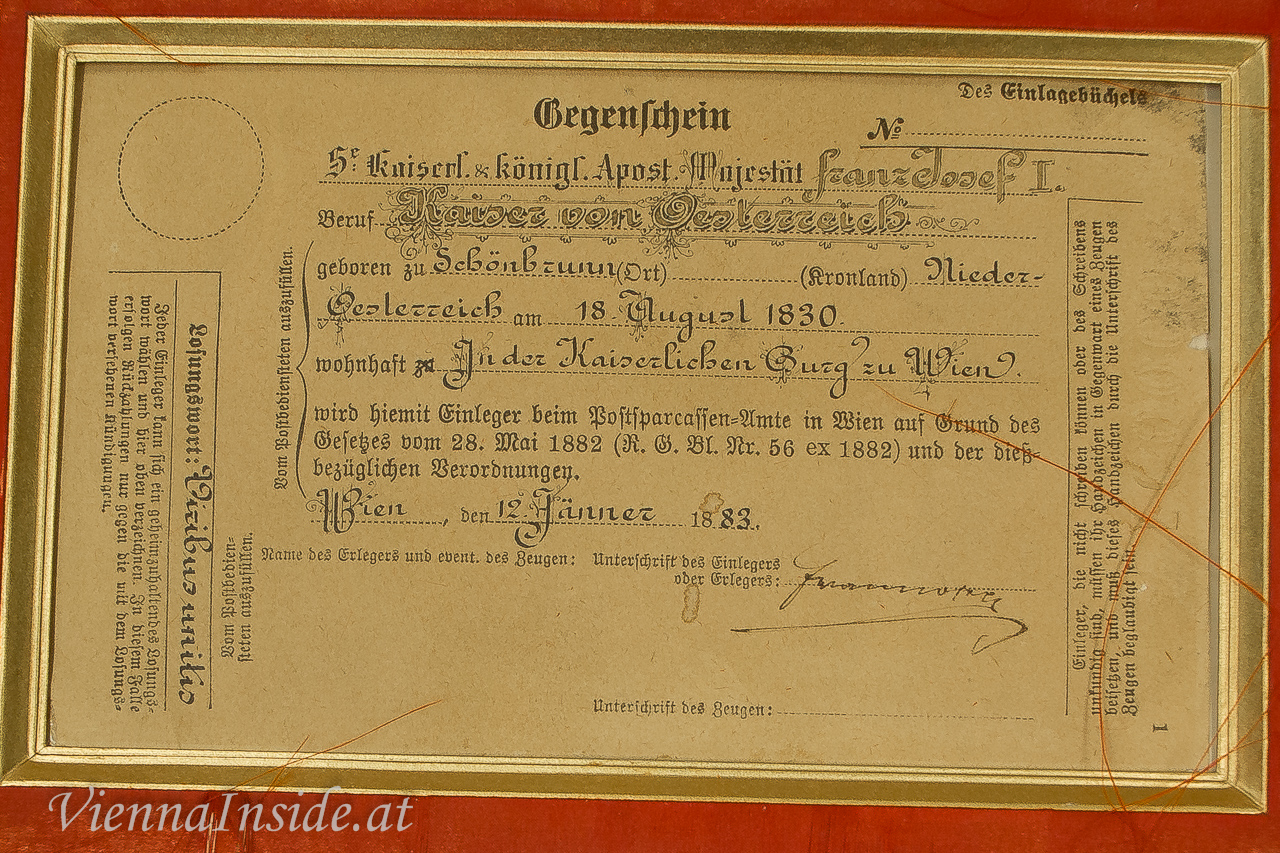 Des Einlagebüchels
Gegenschein
№
Se Kaiserl. & königl. Apost. Majestät Franz Josef I.
Beruf Kaiser von Oesterreich
geboren zu Schönbrunn (Ort) (Kronland) Nieder-
Oesterreich am 18. August 1830.
wohnhaft zu In der Kaiserlichen Burg zu Wien.
wird hiemit Einleger beim Postsparcassen-Amte in Wien auf Grund des
Gesetzes vom 28. Mai 1882 (R. G. Bl. Nr. 56 ex 1882) und der dieß-
bezüglichen Verordnungen.
Wien, den 12. Jänner 1883.
Name des Erlegers und event. des Zeugen: Unterschrift des Einlegers
oder Erlegers:
Unterschrift des Zeugen:
Vom Postbediensteten auszufüllen.
Losungswort: Viribus unitis
Jeder Einleger kann sich ein geheimzuhaltendes Losungs-
wort wählen und hier oben verzeichnen. In diesem Falle
erfolgen Rückzahlungen nur gegen die mit dem Losungs-
wort versehenen Kündigungen.
Vom Postbedien-
steten auszufüllen.
Einleger, die nicht schreiben können oder des Schreibens
unkundig sind, müssen ihr Handzeichen in Gegenwart eines Zeugen
beisetzen, und muß dieses Handzeichen durch die Unterschrift des
Zeugen beglaubigt sein.
1
ViennaInside.at